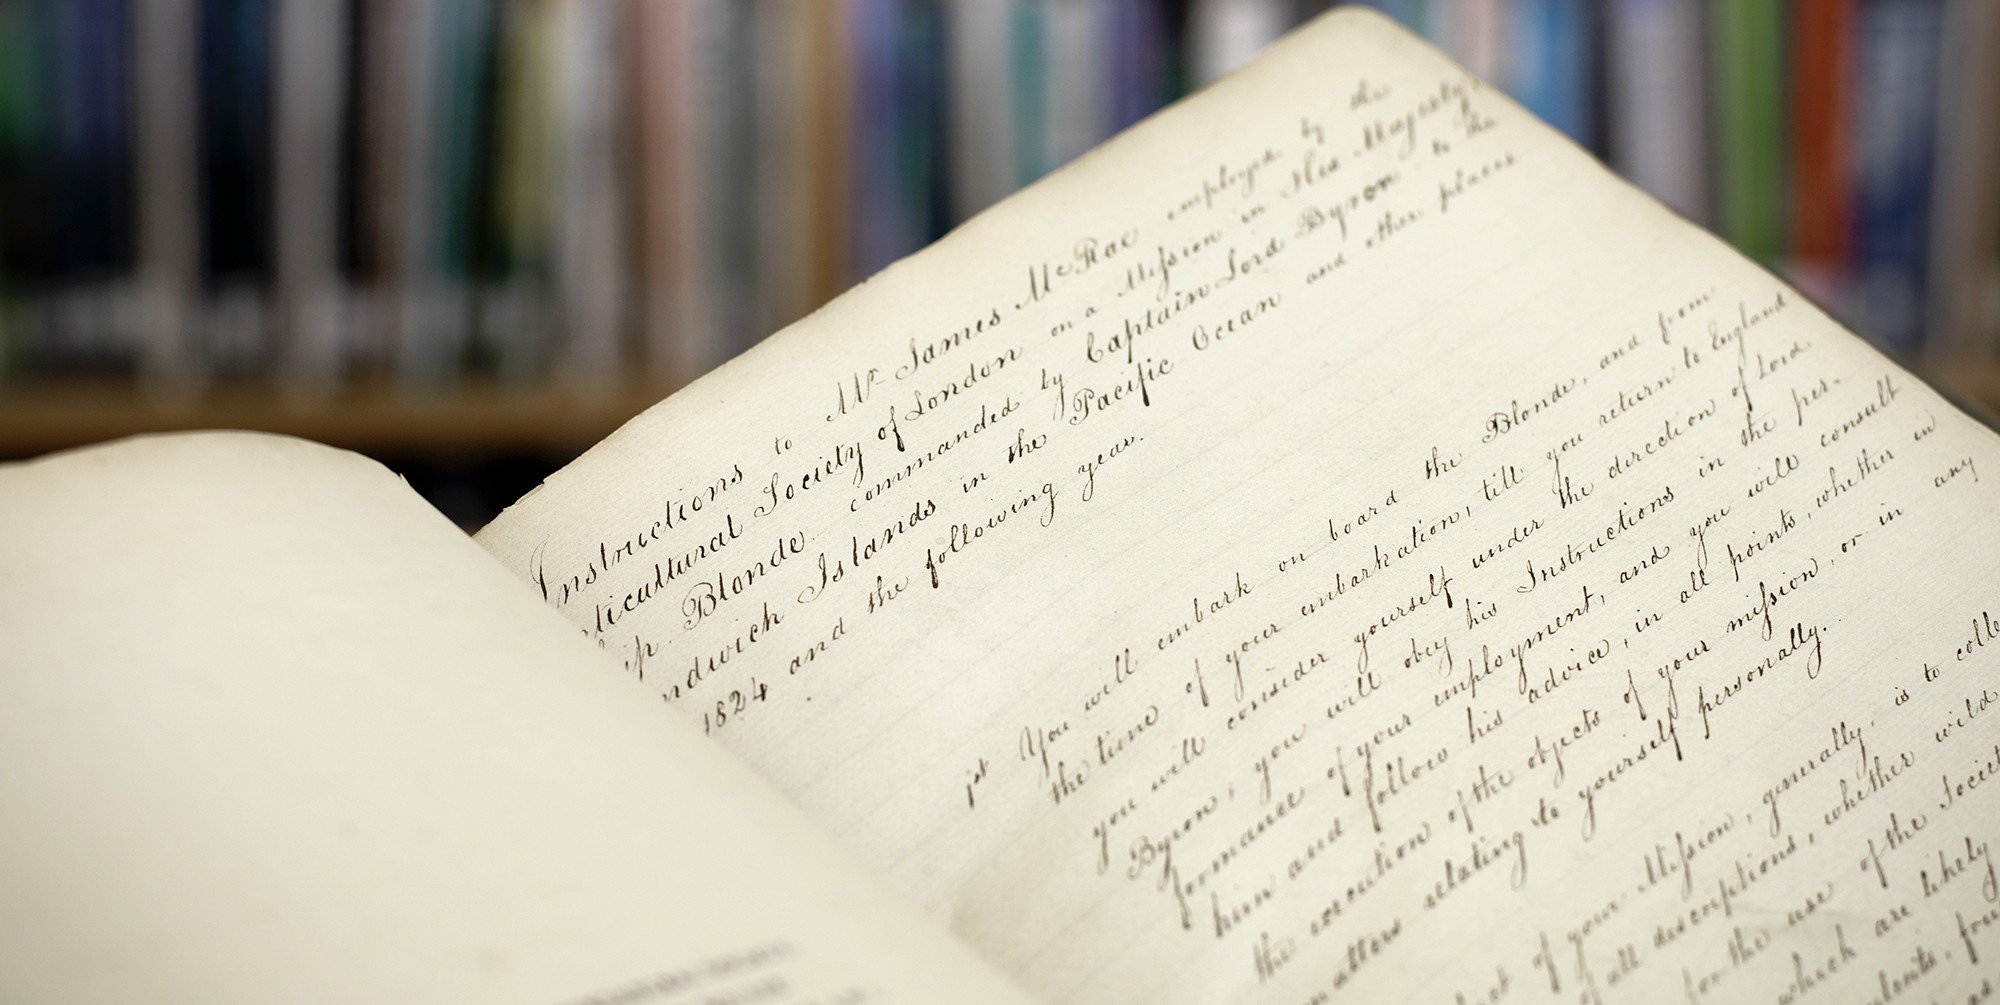 Instructions to Mr. James McRae employed by the
ticultural Society of London on a Mission in His Majesty's
ip Blonde commanded by Captain Lord Byron to the
ndwich Islands in the Pacific Ocean and other places
1824 and the following year.
1st You will embark on board the Blonde, and from
the time of your embarkation, till you return to England
you will consider yourself under the direction of Lord
Byron; you will obey his Instructions in the per-
formance of your employment, and you will consult
him and follow his advice, in all points, whether in
the execution of the objects of your mission, or in any
matters relating to yourself personally.
ct of your Mission, generally, is to colle
of all descriptions, whether wild
for the use of the Societ
which are likely